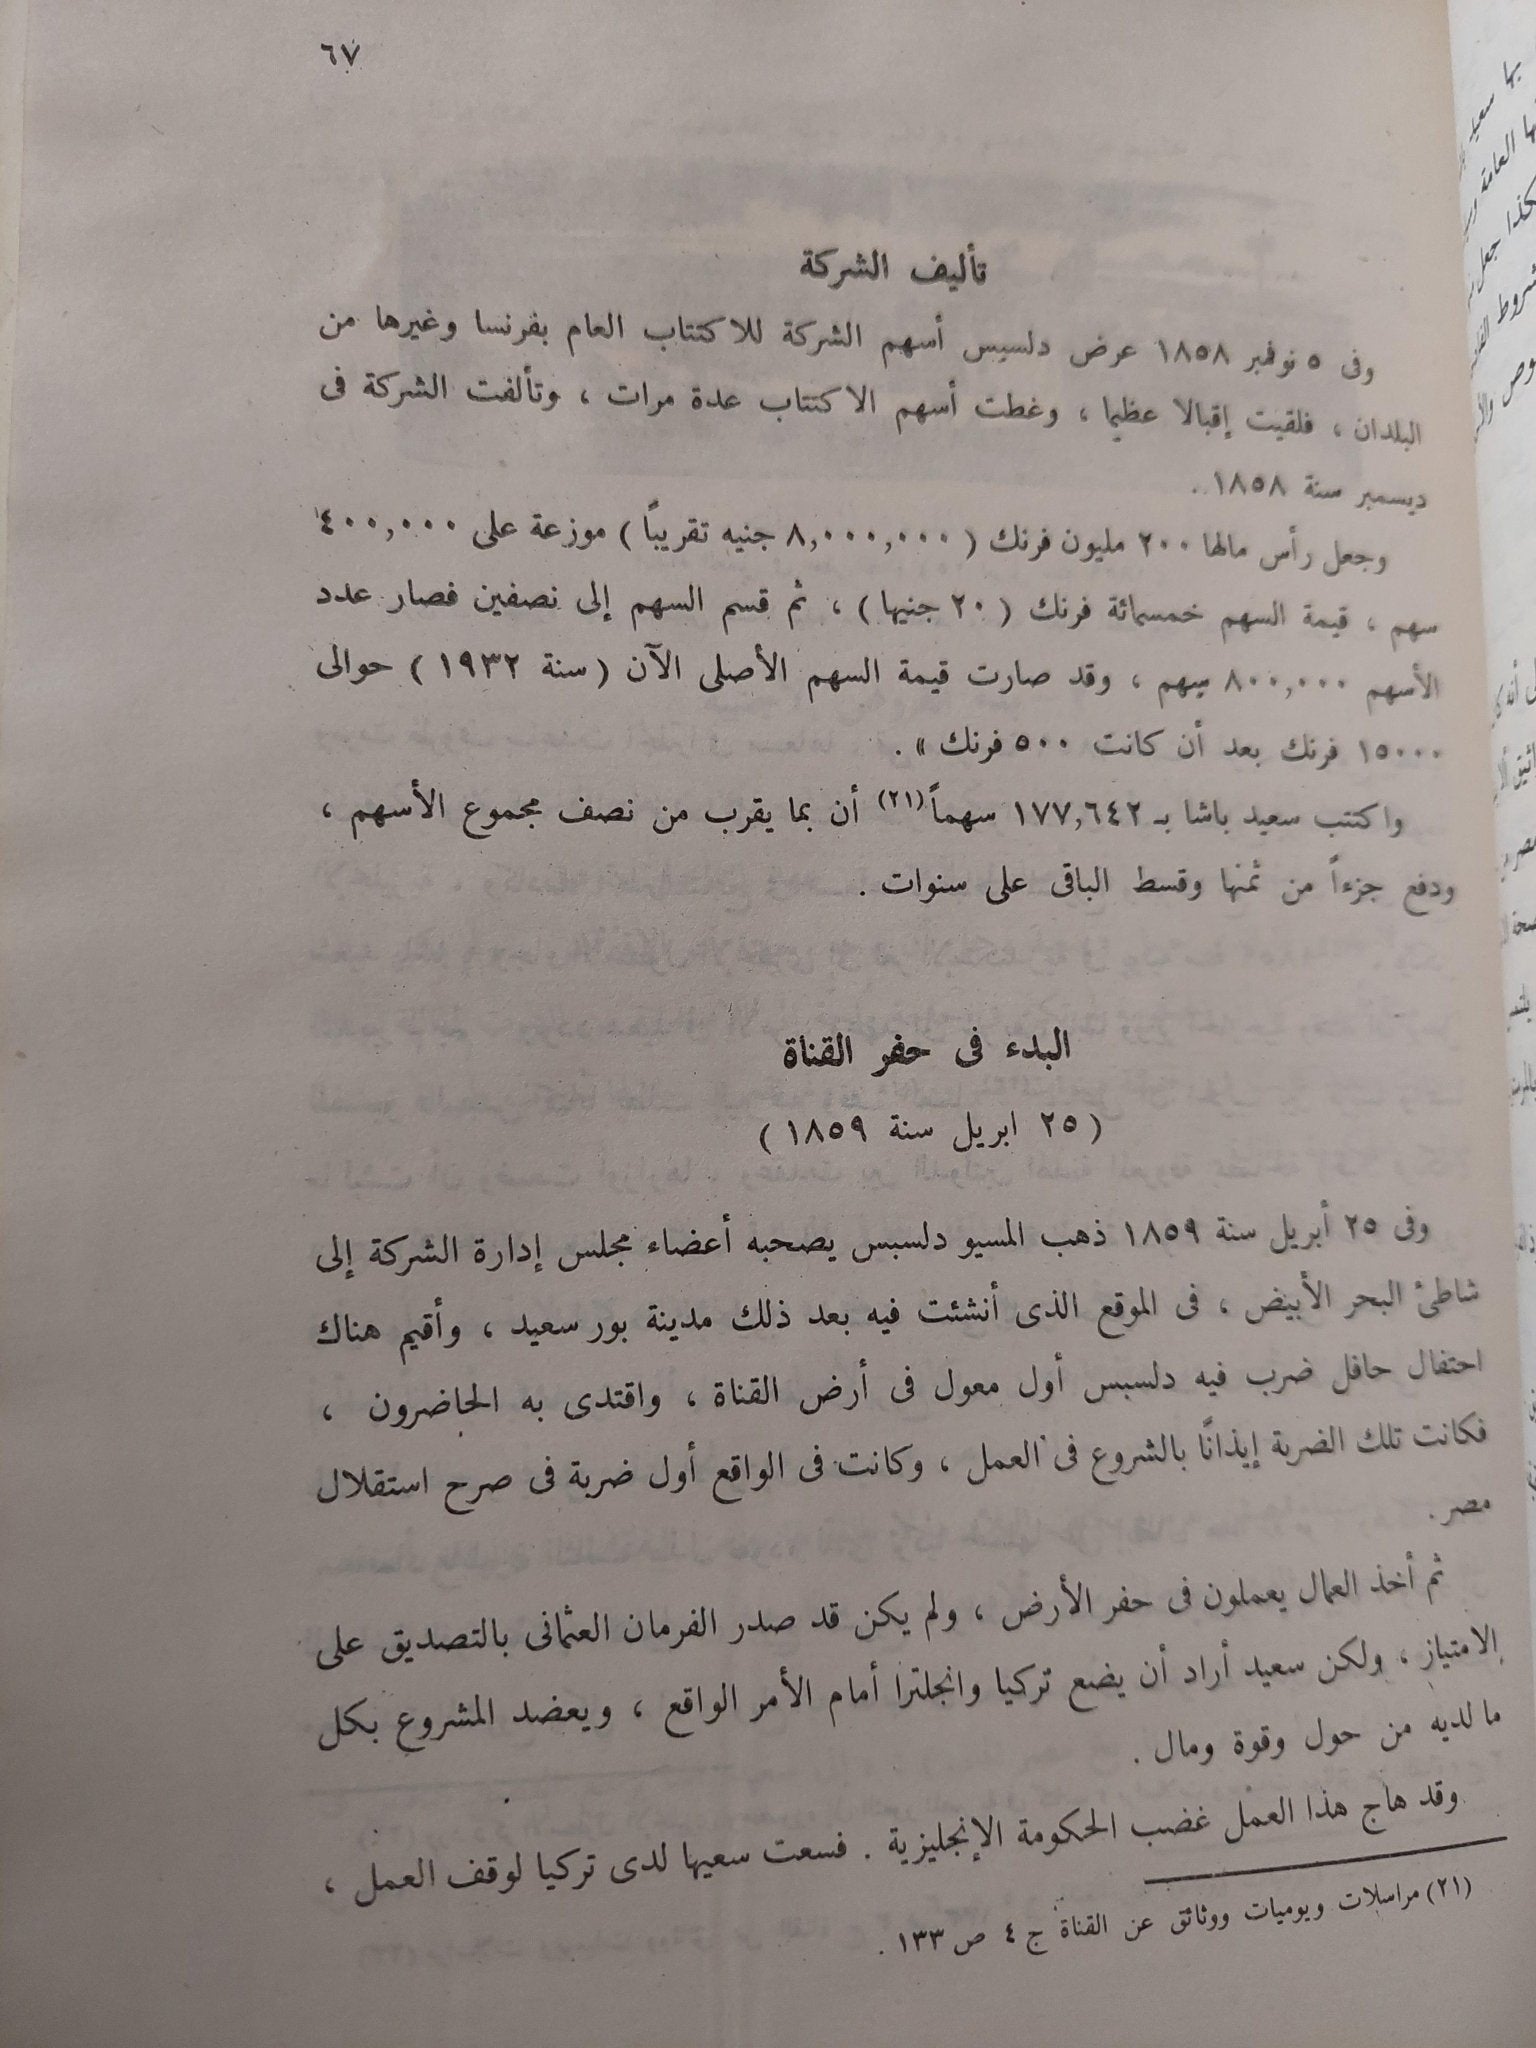 ٦٧
تأليف الشركة
وفى ٥ نوفمبر ١٨٥٨ عرض دلسبس أسهم الشركة للاكتتاب العام بفرنسا وغيرها من
البلدان ، فلقيت إقبالا عظيما ، وغطت أسهم الاكتتاب عدة مرات ، وتألفت الشركة فى
ديسمبر سنة ١٨٥٨ .
وجعل رأس مالها ٢٠٠ مليون فرنك ( ٨,٠٠٠,٠٠٠ جنيه تقريبًا ) موزعة على ٤٠٠,٠٠٠
سهم ، قيمة السهم خمسمائة فرنك ( ٢٠ جنيها ) ، ثم قسم السهم إلى نصفين فصار عدد
الأسهم ٨٠٠,٠٠٠ سهم ، وقد صارت قيمة السهم الأصلى الآن ( سنة ١٩٣٢ ) حوالى
١٥٠٠٠ فرنك بعد أن كانت ٥٠٠ فرنك » .
واكتتب سعيد باشا بـ ١٧٧,٦٤٢ سهماً (٢١) أن بما يقرب من نصف مجموع الأسهم ،
ودفع جزءاً من ثمنها وقسط الباقى على سنوات .
البدء فى حفر القناة
( ٢٥ ابريل سنة ١٨٥٩ )
وفى ٢٥ أبريل سنة ١٨٥٩ ذهب المسيو دلسبس يصحبه أعضاء مجلس إدارة الشركة إلى
شاطئ البحر الأبيض ، فى الموقع الذى أنشئت فيه بعد ذلك مدينة بور سعيد ، وأقيم هناك
احتفال حافل ضرب فيه دلسبس أول معول فى أرض القناة ، واقتدى به الحاضرون ،
فكانت تلك الضربة إيذانًا بالشروع فى العمل ، وكانت فى الواقع أول ضربة فى صرح استقلال
مصر .
ثم أخذ العمال يعملون فى حفر الأرض ، ولم يكن قد صدر الفرمان العثمانى بالتصديق على
الامتياز ، ولكن سعيد أراد أن يضع تركيا وانجلترا أمام الأمر الواقع ، ويعضد المشروع بكل
ما لديه من حول وقوة ومال .
وقد هاج هذا العمل غضب الحكومة الإنجليزية . فسعت سعيها لدى تركيا لوقف العمل ،
(٢١) مراسلات ويوميات ووثائق عن القناة ج ٤ ص ١٣٣ .